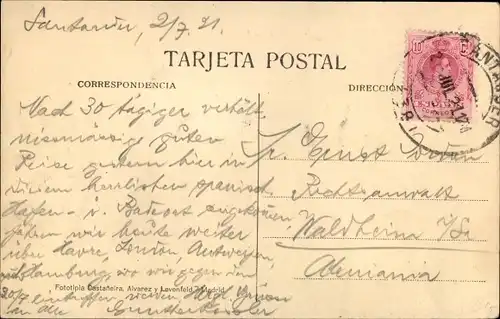 Santander, 2/7.21.
TARJETA POSTAL
CORRESPONDENCIA
DIRECCIÓN
Nach 30 tägiger verhält
nismässige guten
Reise gestern hier in
diesem herrlichen spanisch.
Hafen- u. Badeort angekommen
gehen wir heute weiter
über Havre, London, Antwerpen,
Hamburg, wo wir gegen den
20/7 eintreffen werden. Herzl.
an alle
Sr. Ernst
Rechtsanwalt
Waldheim i/Sa
Alemania
Fototipia Castañeira, Alvarez y Levenfeld - Madrid